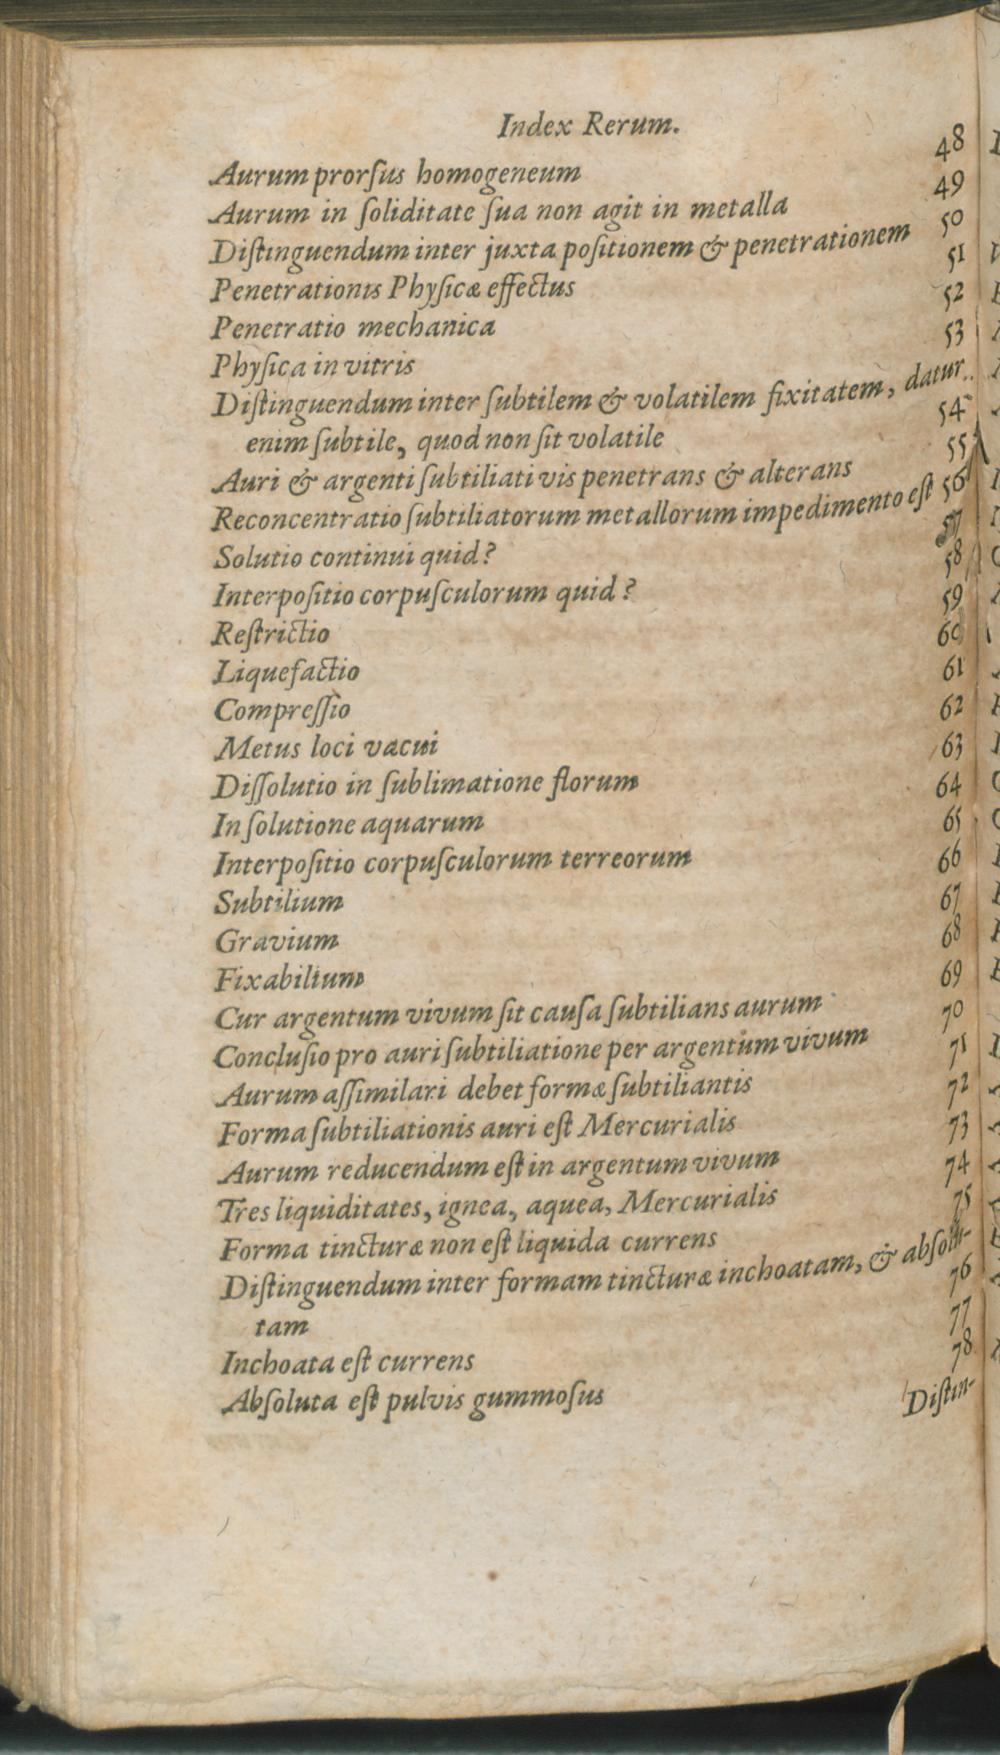 Index Rerum.
Aurum prorſus homogeneum 48
Aurum in ſoliditate ſua non agit in metalla 49
Diſtinguendum inter juxta poſitionem & penetrationem 50
Penetrationis Phyſicæ effectus 51
Penetratio mechanica 52
Phyſica in vitris 53
Diſtinguendum inter ſubtilem & volatilem fixitatem, datur
enim ſubtile, quod non ſit volatile 54
Auri & argenti ſubtiliati vis penetrans & alterans 55
Reconcentratio ſubtiliatorum metallorum impedimento eſt 56
Solutio continui quid? 57
Interpoſitio corpuſculorum quid? 58
Reſtrictio 59
Liquefactio 60
Compreſſio 61
Metus loci vacui 62
Diſſolutio in ſublimatione florum 63
In ſolutione aquarum 64
Interpoſitio corpuſculorum terreorum 65
Subtilium 66
Gravium 67
Fixabilium 68
Cur argentum vivum ſit cauſa ſubtilians aurum 69
Concluſio pro auri ſubtiliatione per argentum vivum 70
Aurum aſſimilari debet formæ ſubtiliantis 71
Forma ſubtiliationis auri eſt Mercurialis 72
Aurum reducendum eſt in argentum vivum 73
Tres liquiditates, ignea, aquea, Mercurialis 74
Forma tincturæ non eſt liquida currens 75
Diſtinguendum inter formam tincturæ inchoatam, & abſolu-
tam 76
Inchoata eſt currens 77
Abſoluta eſt pulvis gummoſus 78
Diſtin-